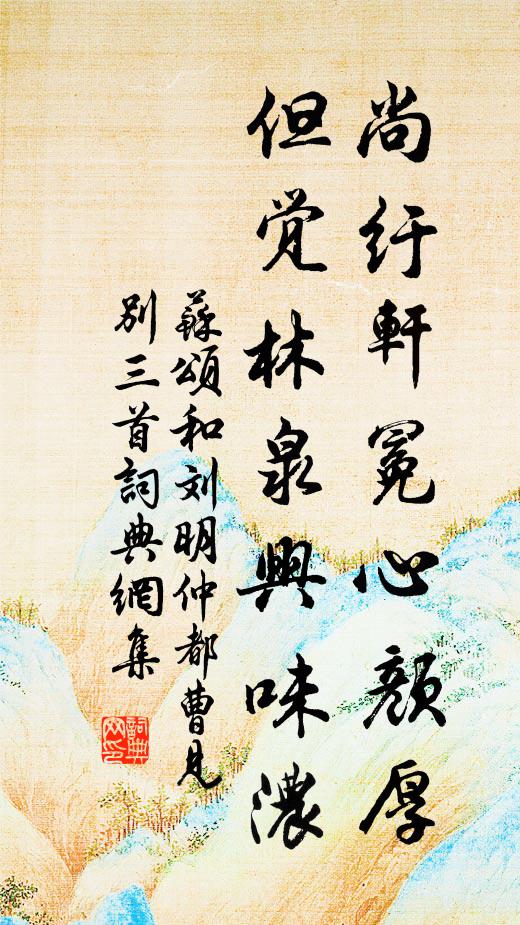 尚纡軒冕心顔厚
但觉林泉興味濃
蘇頌和刘明仲都曹見
别三首詞典網集
詞典网印